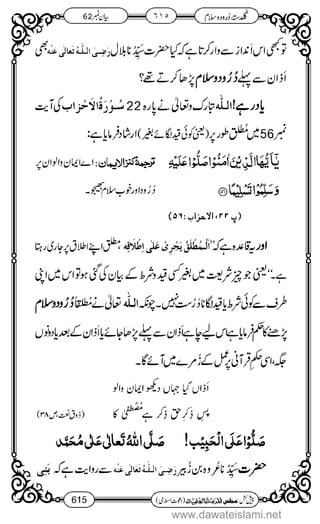 بیان نمبر 62
٦١٥
گلدستۂ درود و سلام
تو کبھی اس اَنداز سے وار کرتا ہے کہ کیا حضرت سَیِّدُنا بلال رَضِیَ اللہُ تَعَالٰی عَنْہُ بھی
اَذان سے پہلے دُرُود و سلام پڑھا کرتے تھے؟
یاد رہے! اللہ تبارک وتعالیٰ نے پارہ 22 سُوْرَۃُ الْاَحْزَاب کی آیت
نمبر 56 میں مُطْلَق طور پر (یعنی کوئی قید لگائے بغیر) ارشاد فرمایا ہے:
یٰۤاَیُّهَا الَّذِیْنَ اٰمَنُوْا صَلُّوْا عَلَیْهِ
ترجمۂ کنز الایمان: اے ایمان والو ان پر
وَ سَلِّمُوْا تَسْلِیْمًا ﴿۵۶﴾
دُرُود اور خوب سلام بھیجو۔
(پ ۲۲، الاحزاب: ۵٦)
اور یہ قاعدہ ہے کہ ’’اَلْمُطْلَقُ یَجْرِیْ عَلٰی اِطْلَاقِہٖ، مطلق اپنے اطلاق پر جاری رہتا
ہے۔‘‘ یعنی جو چیز شریعت میں بغیر کسی قید و شرط کے بیان کی گئی ہو تو اس میں اپنی
طرف سے کوئی شرط یا قید لگانا دُرُست نہیں۔ چونکہ اللہ تعالیٰ نے مُطْلَقًا دُرُود و سلام
پڑھنے کا حکم فرمایا ہے اس لیے چاہے اَذان سے پہلے پڑھا جائے یا اَذان کے بعد یا دونوں
جگہ اسی حکمِ قرآنی پر عمل کے زُمرے میں آئے گا۔
اَذاں کیا جہاں دیکھو ایمان والو
پسِ ذِکرِ حق ذِکر ہے مُصْطَفٰے کا
(ذوقِ نعت، ص ۳۸)
صَلُّوْا عَلَی الْحَبِیْب! صَلَّی اللہُ تَعَالٰی عَلٰی مُحَمَّد
حضرت سَیِّدُنا عُروہ بن زُبیر رَضِیَ اللہُ تَعَالٰی عَنْہُ سے روایت ہے کہ بَنی
615
www.dawateislami.net